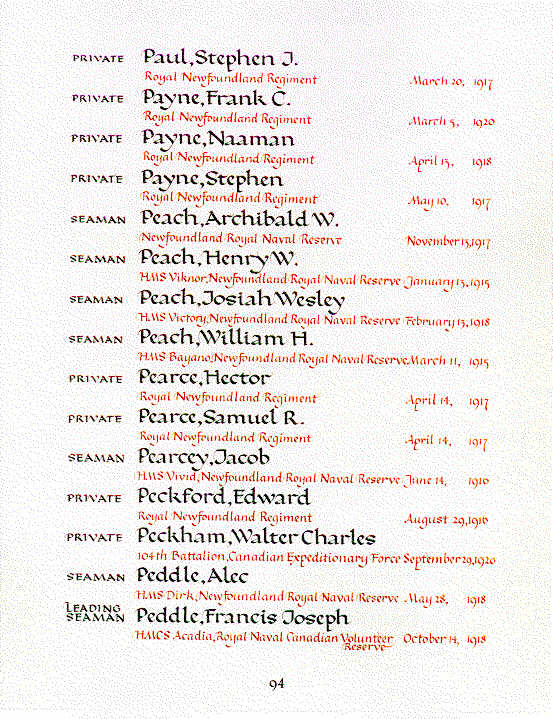 PRIVATE Paul, Stephen J.
Royal Newfoundland Regiment March 20, 1917
PRIVATE Payne, Frank C.
Royal Newfoundland Regiment March 5, 1920
PRIVATE Payne, Naaman
Royal Newfoundland Regiment April 13, 1918
PRIVATE Payne, Stephen
Royal Newfoundland Regiment May 10, 1917
SEAMAN Peach, Archibald W.
Newfoundland Royal Naval Reserve November 13, 1917
SEAMAN Peach, Henry W.
HMS Viknor, Newfoundland Royal Naval Reserve January 13, 1915
SEAMAN Peach, Josiah Wesley
HMS Victory, Newfoundland Royal Naval Reserve February 13, 1918
SEAMAN Peach, William H.
HMS Bayano, Newfoundland Royal Naval Reserve March 11, 1915
PRIVATE Pearce, Hector
Royal Newfoundland Regiment April 14, 1917
PRIVATE Pearce, Samuel R.
Royal Newfoundland Regiment April 14, 1917
SEAMAN Pearcey, Jacob
HMS Vivid, Newfoundland Royal Naval Reserve June 14, 1916
PRIVATE Peckford, Edward
Royal Newfoundland Regiment August 29, 1916
PRIVATE Peckham, Walter Charles
104th Battalion, Canadian Expeditionary Force September 29, 1920
SEAMAN Peddle, Alec
HMS Dirk, Newfoundland Royal Naval Reserve May 28, 1918
LEADING
SEAMAN Peddle, Francis Joseph
HMCS Acadia, Royal Naval Canadian Volunteer October 14, 1918
Reserve
94